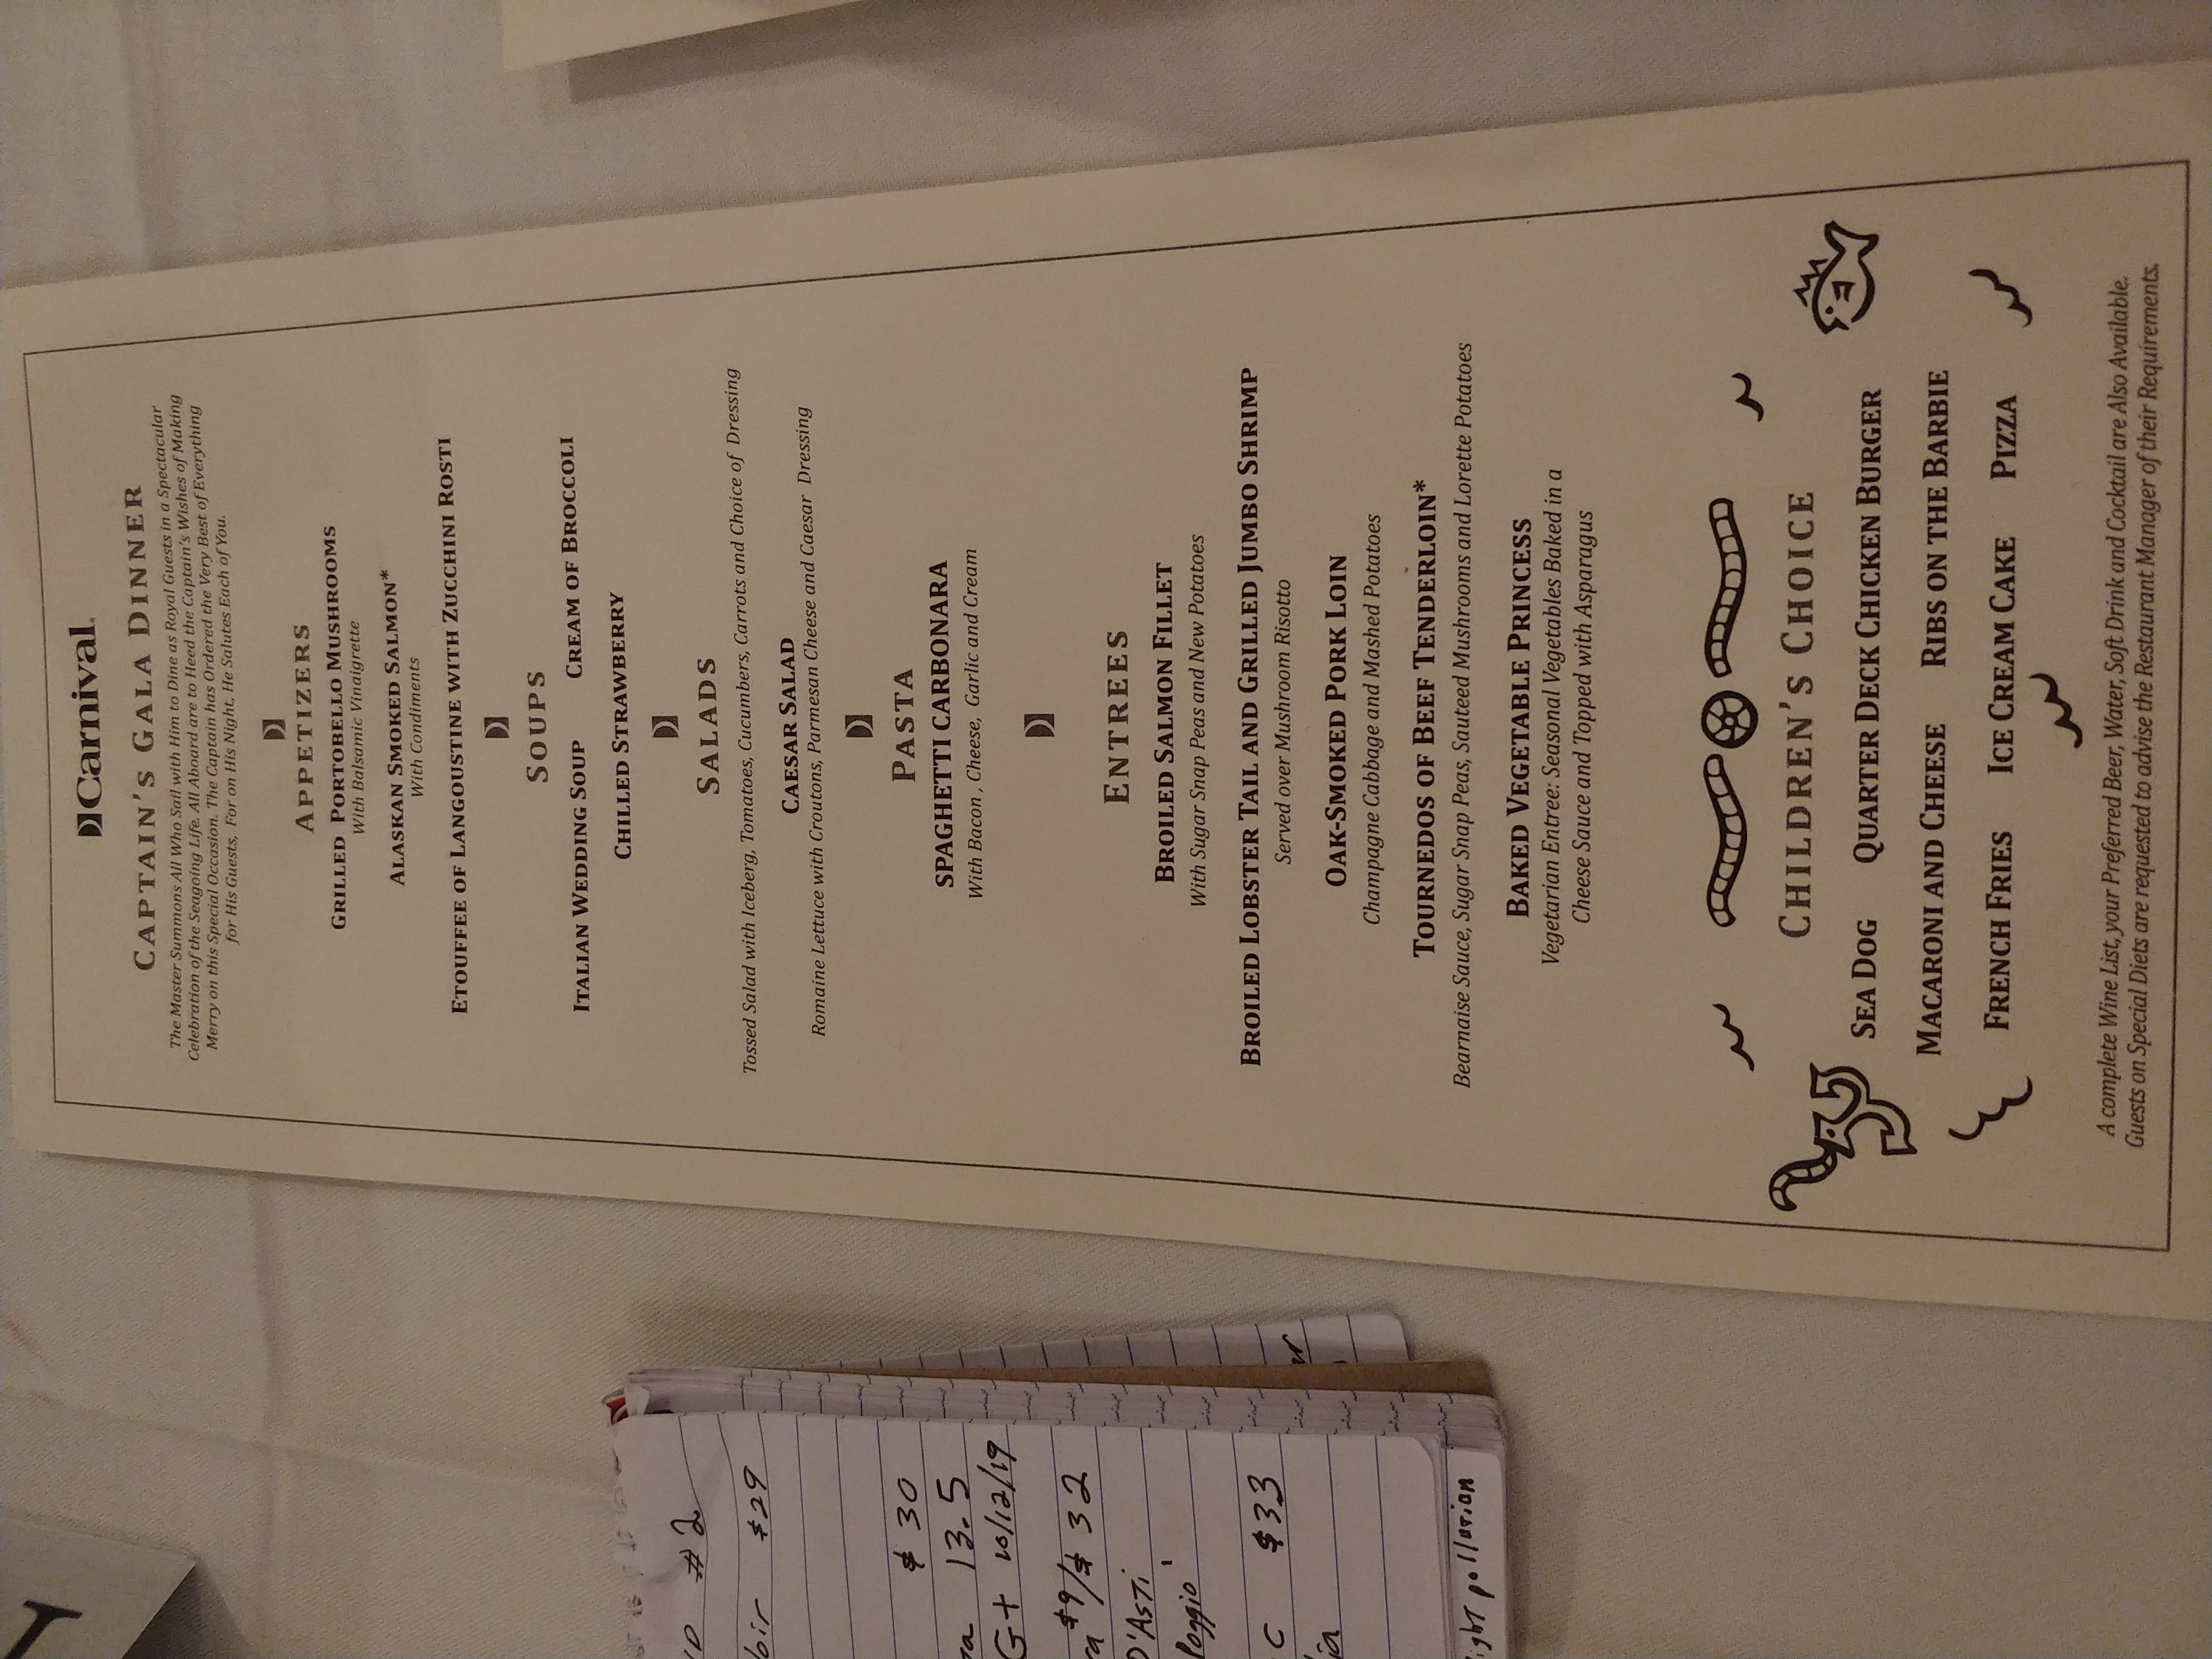 Carnival
CAPTAIN'S GALA DINNER
The Master Summons All Who Sail with Him to Dine as Royal Guests in a Spectacular
Celebration of the Seagoing Life. All Aboard are to Heed the Captain's Wishes of Making
Merry on this Special Occasion. The Captain has Ordered the Very Best of Everything
for His Guests, For on His Night, He Salutes Each of You.
APPETIZERS
GRILLED PORTOBELLO MUSHROOMS
With Balsamic Vinaigrette
ALASKAN SMOKED SALMON*
With Condiments
ETOUFFEE OF LANGOUSTINE WITH ZUCCHINI ROSTI
SOUPS
ITALIAN WEDDING SOUP CREAM OF BROCCOLI
CHILLED STRAWBERRY
SALADS
Tossed Salad with Iceberg, Tomatoes, Cucumbers, Carrots and Choice of Dressing
CAESAR SALAD
Romaine Lettuce with Croutons, Parmesan Cheese and Caesar Dressing
PASTA
SPAGHETTI CARBONARA
With Bacon, Cheese, Garlic and Cream
ENTREES
BROILED SALMON FILLET
With Sugar Snap Peas and New Potatoes
BROILED LOBSTER TAIL AND GRILLED JUMBO SHRIMP
Served over Mushroom Risotto
OAK-SMOKED PORK LOIN
Champagne Cabbage and Mashed Potatoes
TOURNEDOS OF BEEF TENDERLOIN*
Bearnaise Sauce, Sugar Snap Peas, Sauteed Mushrooms and Lorette Potatoes
BAKED VEGETABLE PRINCESS
Vegetarian Entree: Seasonal Vegetables Baked in a
Cheese Sauce and Topped with Asparagus
CHILDREN'S CHOICE
SEA DOG QUARTER DECK CHICKEN BURGER
MACARONI AND CHEESE RIBS ON THE BARBIE
FRENCH FRIES ICE CREAM CAKE PIZZA
A complete Wine List, your Preferred Beer, Water, Soft Drink and Cocktail are Also Available.
Guests on Special Diets are requested to advise the Restaurant Manager of their Requirements.
#2
$29
$30
13.5
G+ 10/12/19
$9/$32
D'Asti
Poggio
C $33
pollution